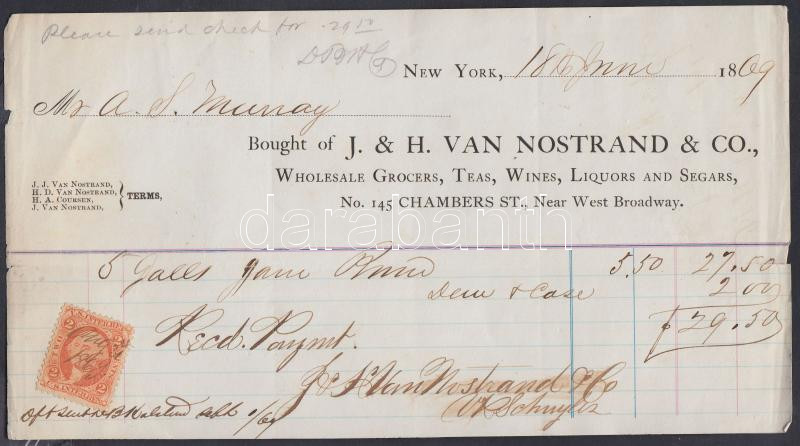 Please send check for 29 50
New York, 18th June 1869
Mr A. S. Murray
Bought of J. & H. VAN NOSTRAND & CO.,
Wholesale Grocers, Teas, Wines, Liquors and Segars,
No. 145 CHAMBERS ST., Near West Broadway.
J. J. Van Nostrand,
H. D. Van Nostrand,
H. A. Coursen,
J. Van Nostrand,
TERMS,
darabanth
5 Galls 5.50 27.50
Dem & Case 2 00
$29.50
Recd. Paymt.
J & H Van Nostrand & Co
U.S. INTER. REV.
2 2
TWO
2 2